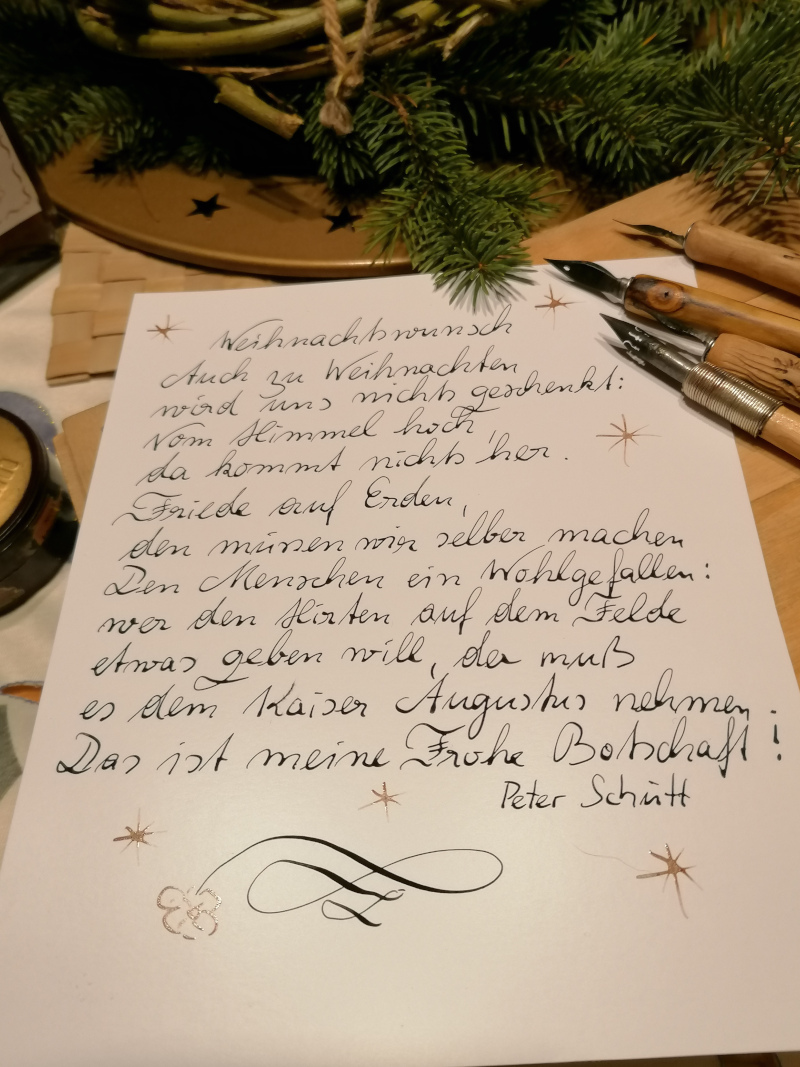 Weihnachtswunsch
Auch zu Weihnachten
wird uns nichts geschenkt:
Vom Himmel hoch,
da kommt nichts her.
Friede auf Erden,
den müssen wir selber machen
Den Menschen ein Wohlgefallen:
wer den Hirten auf dem Felde
etwas geben will, der muß
es dem Kaiser Augustus nehmen.
Das ist meine Frohe Botschaft!
Peter Schütt